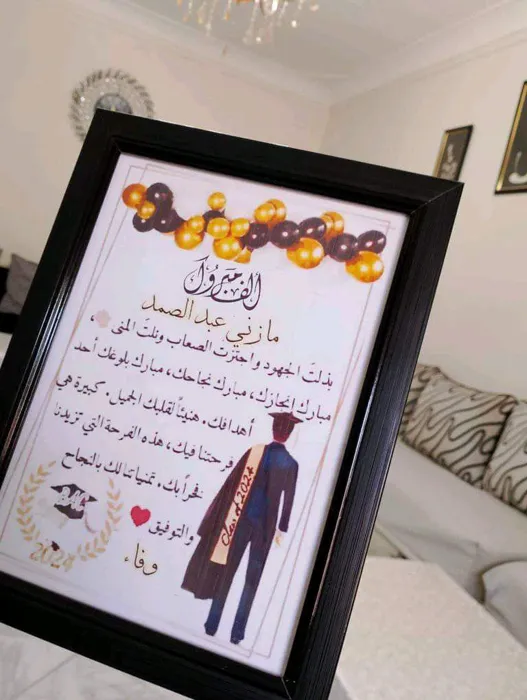 ألف مبروك
مازني عبد الصمد
بذلتَ الجهود واجتزتَ الصعاب ونلتَ المنى،
مبارك إنجازك، مبارك نجاحك، مبارك بلوغك أحد
أهدافك. هنيئاً لقلبك الجميل. كبيرة هي
فرحتنا فيك، هذه الفرحة التي تزيدنا
فخراً بك. تمنياتنا لك بالنجاح
والتوفيق
وفاء
Class of 2024
BAC
2024